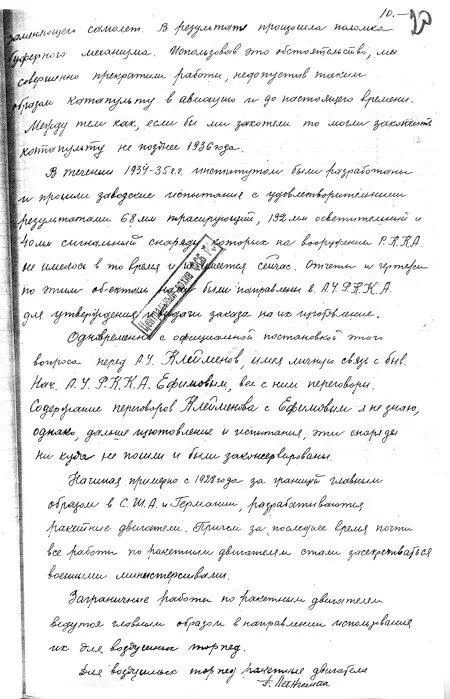 10.
заменяющего самолет. В результате произошла поломка
буферного механизма. Использовав это обстоятельство, мы
совершенно прекратили работы, недопустив таким
образом катапульту в авиацию и до настоящего времени.
Между тем как, если бы мы захотели то могли закончить
катапульту не позднее 1936 года.
В течении 1934-35 г.г. институтом были разработаны
и прошли заводские испытания с удовлетворительными
результатами 68 мм трасирующий, 132 мм осветительный и
40 мм сигнальный снаряды, которых на вооружении Р.К.К.А.
не имелось в то время и не имеется сейчас. Отчеты и чертежи
по этим объектам были направлены в А.У.Р.К.К.А.
для утверждения и выдачи заказа на их изготовление.
Центральный архив ФСБ
Одновременно с официальной постановкой этого
вопроса перед А.У. Клейменов, имея личную связь с быв.
Нач. А.У.Р.К.К.А. Ефимовым, вел с ним переговоры.
Содержание переговоров Клейменова с Ефимовым я не знаю,
однако, дальше изготовление и испытания, эти снаряды
ни куда не пошли и были законсервированы.
Начиная примерно с 1928 года за границей главным
образом в С.Ш.А. и Германии, разрабатываются
ракетные двигатели. Причем за последнее время почти
все работы по ракетным двигателям стали засекречиваться
военными министерствами.
Заграничные работы по ракетным двигателям
ведутся главным образом в направлении использования
их для воздушных торпед.
Для воздушных торпед ракетные двигатели
Г. Лангемак